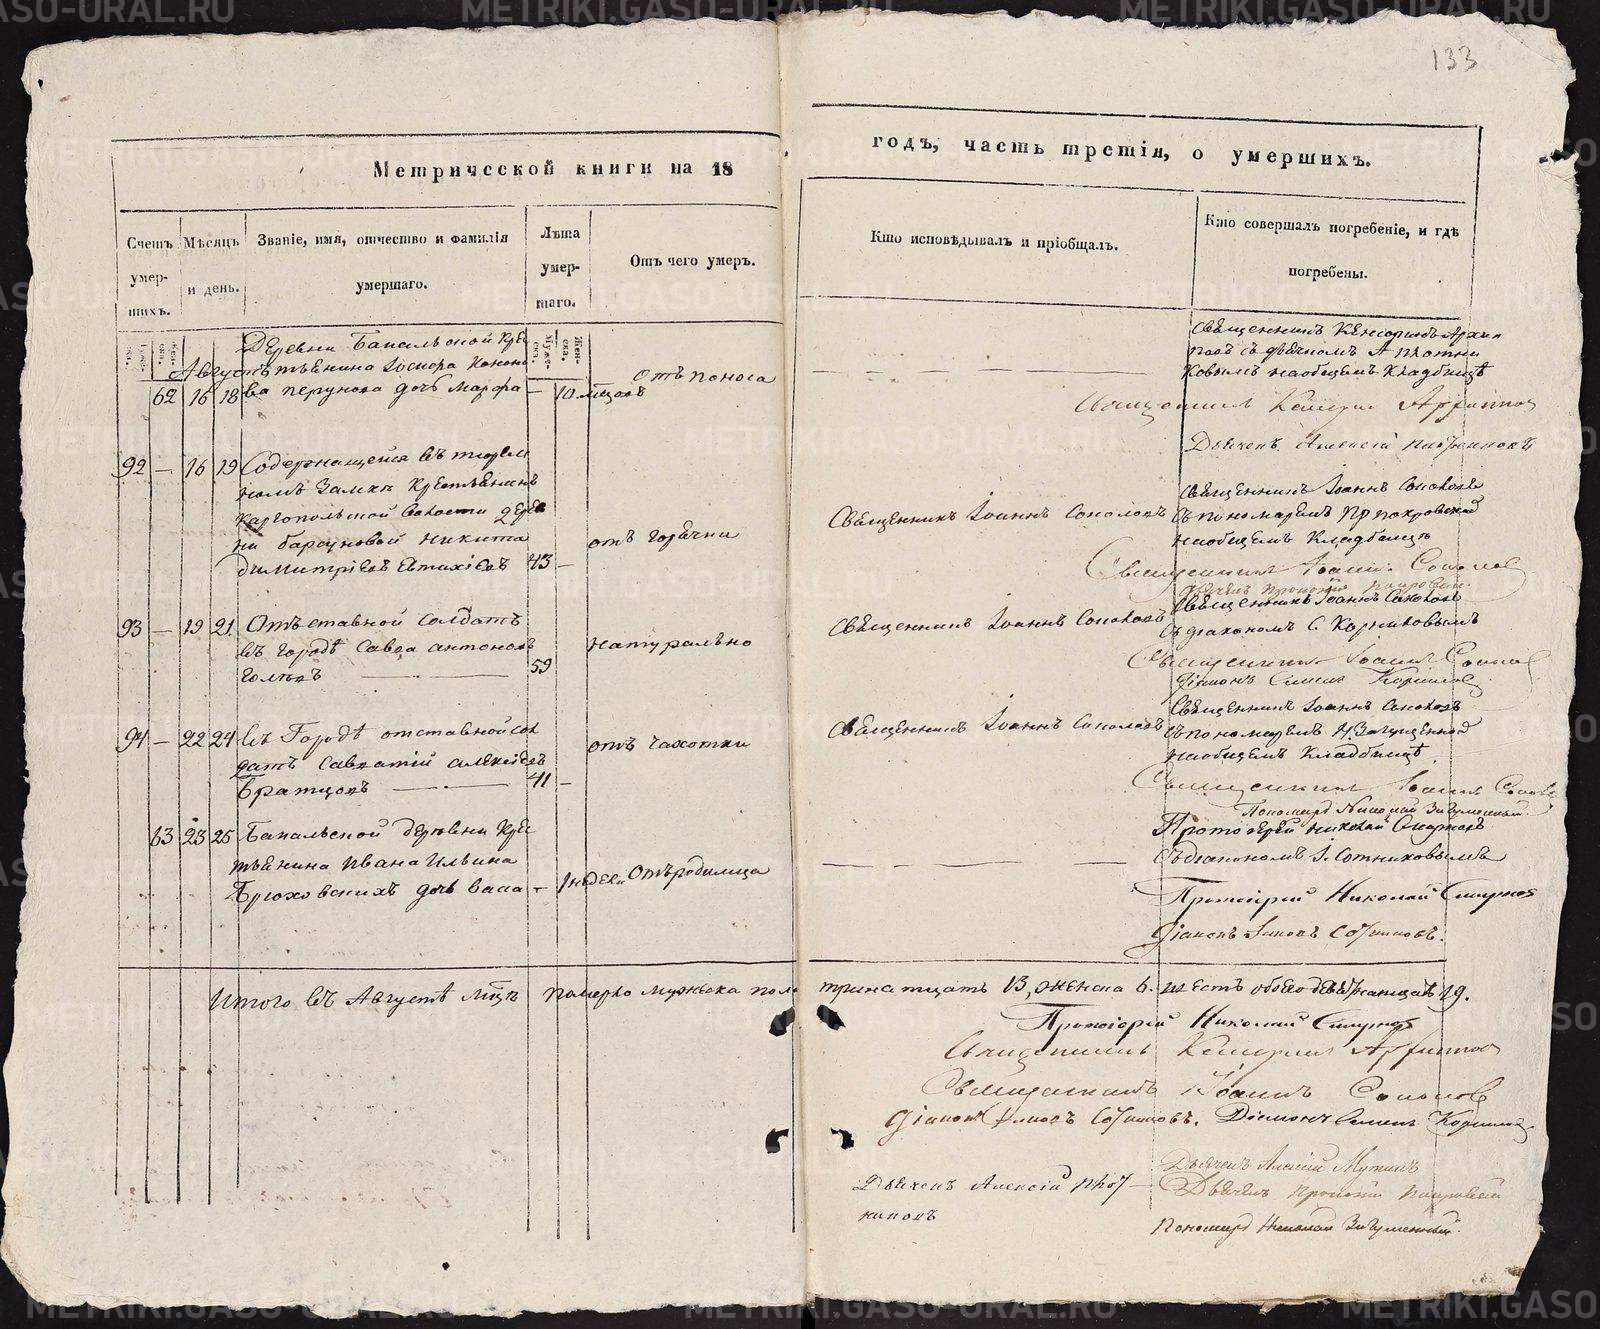 133
Метрической книги на 18
годъ, часть третія, о умершихъ.
Счетъ умер- шихъ.
Мѣсяцъ и день.
Званіе, имя, отчество и фамилія умершаго.
Лѣта умер- шаго.
Отъ чего умеръ.
Кто исповѣдывалъ и пріобщалъ.
Кто совершалъ погребеніе, и гдѣ погребены.
Муже- ска.
Жен- ска.
Муже- ска.
Жен- ска.
Августъ
62 16 18
Деревни Бакальской Кре
стьянина
ва перунова дочь Марфа
— 10 мѣцовъ
отъ поноса
Священникъ
повъ съ дьячкомъ А Плотни
ковымъ наобщемъ Кладбищѣ
Дьячекъ Алексій Плотниковъ
92 — 16 19
Содержащейся въ тюрем
номъ Замкѣ Крестьянинъ
Каргопольской Волости дере
ни баруновой Никита
Димитріевъ Евтихіевъ
43 —
отъ горячки
Священникъ Іоаннъ Соколовъ
Священникъ Іоаннъ Соколовъ
съ пономаремъ Пр покровской
наобщемъ Кладбищѣ
Священникъ Іоаннъ Соколовъ
93 — 19 21
Отъставной Солдатъ
въ городѣ Савва антоновъ
59
натурально
Священникъ Іоаннъ Соколовъ
Священникъ Іоаннъ Соколовъ
съ діакономъ С. Корниловымъ
Священникъ Іоаннъ Соколовъ
Діаконъ Симеонъ Корниловъ
94 — 22 24
въ Городѣ отставной сол
датъ Савватій алексіевъ
Братцовъ
41 —
отъ чахотки
Священникъ Іоаннъ Соколовъ
Священникъ Іоаннъ Соколовъ
съ пономаремъ Н. Загуменной
наобщемъ Кладбищѣ
Священникъ Іоаннъ Соколовъ
Пономарь Николай Загуменный
63 23 25
Бакальской деревни Крес
тьянина Ивана Ильина
Брюховскихъ дочь Васса
— 1 недели
Отъ родимца
Протоіерей Николай Смирновъ
съ діакономъ І. Сотниковымъ
Протоіерей Николай Смирновъ
Діаконъ Іаковъ Сотниковъ.
Итого въ Августѣ мцѣ померло мужеска пола тринатцать 13, женска 6. шесть обоего девятнатцать 19.
Протоіерей Николай Смирновъ
Священникъ
Священникъ Іоаннъ Соколовъ
Діаконъ Іаковъ Сотниковъ. Діаконъ Симеонъ Корниловъ
Дьячекъ Алексій Плот
никовъ
Дьячекъ Алексій
Дьячекъ Прокопій Покровской
Пономарь Николай Загуменный.
METRIKI.GASO-URAL.RU